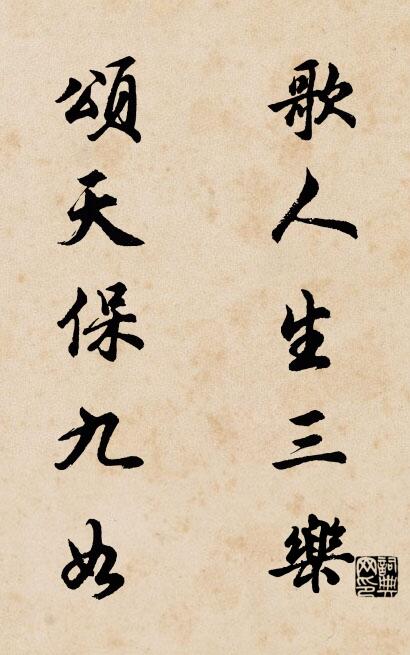 歌人生三樂
頌天保九如
詞典網印